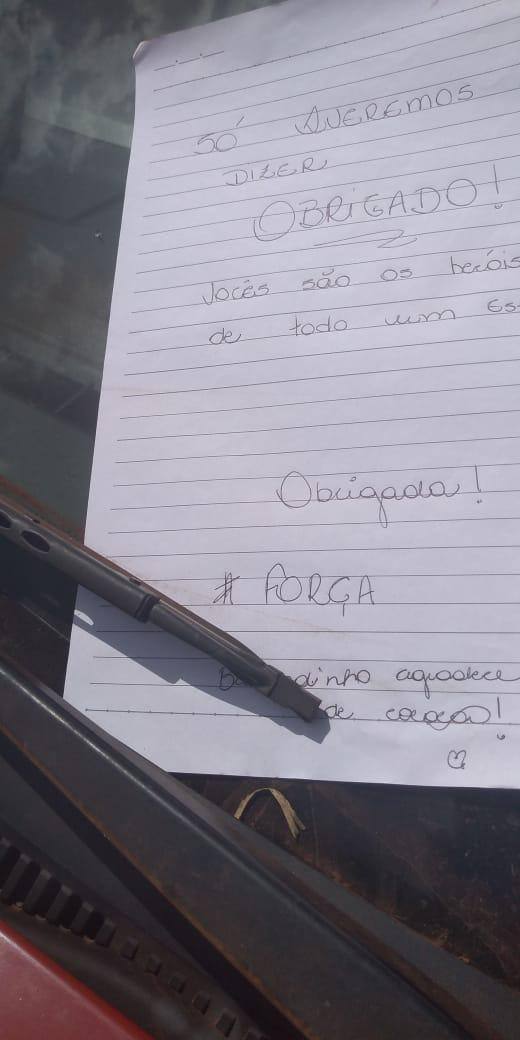 SÓ QUEREMOS
DIZER
OBRIGADO!
Vocês são os heróis
de todo um Es
Obrigada!
# FORÇA
dinho agradece
de coração!